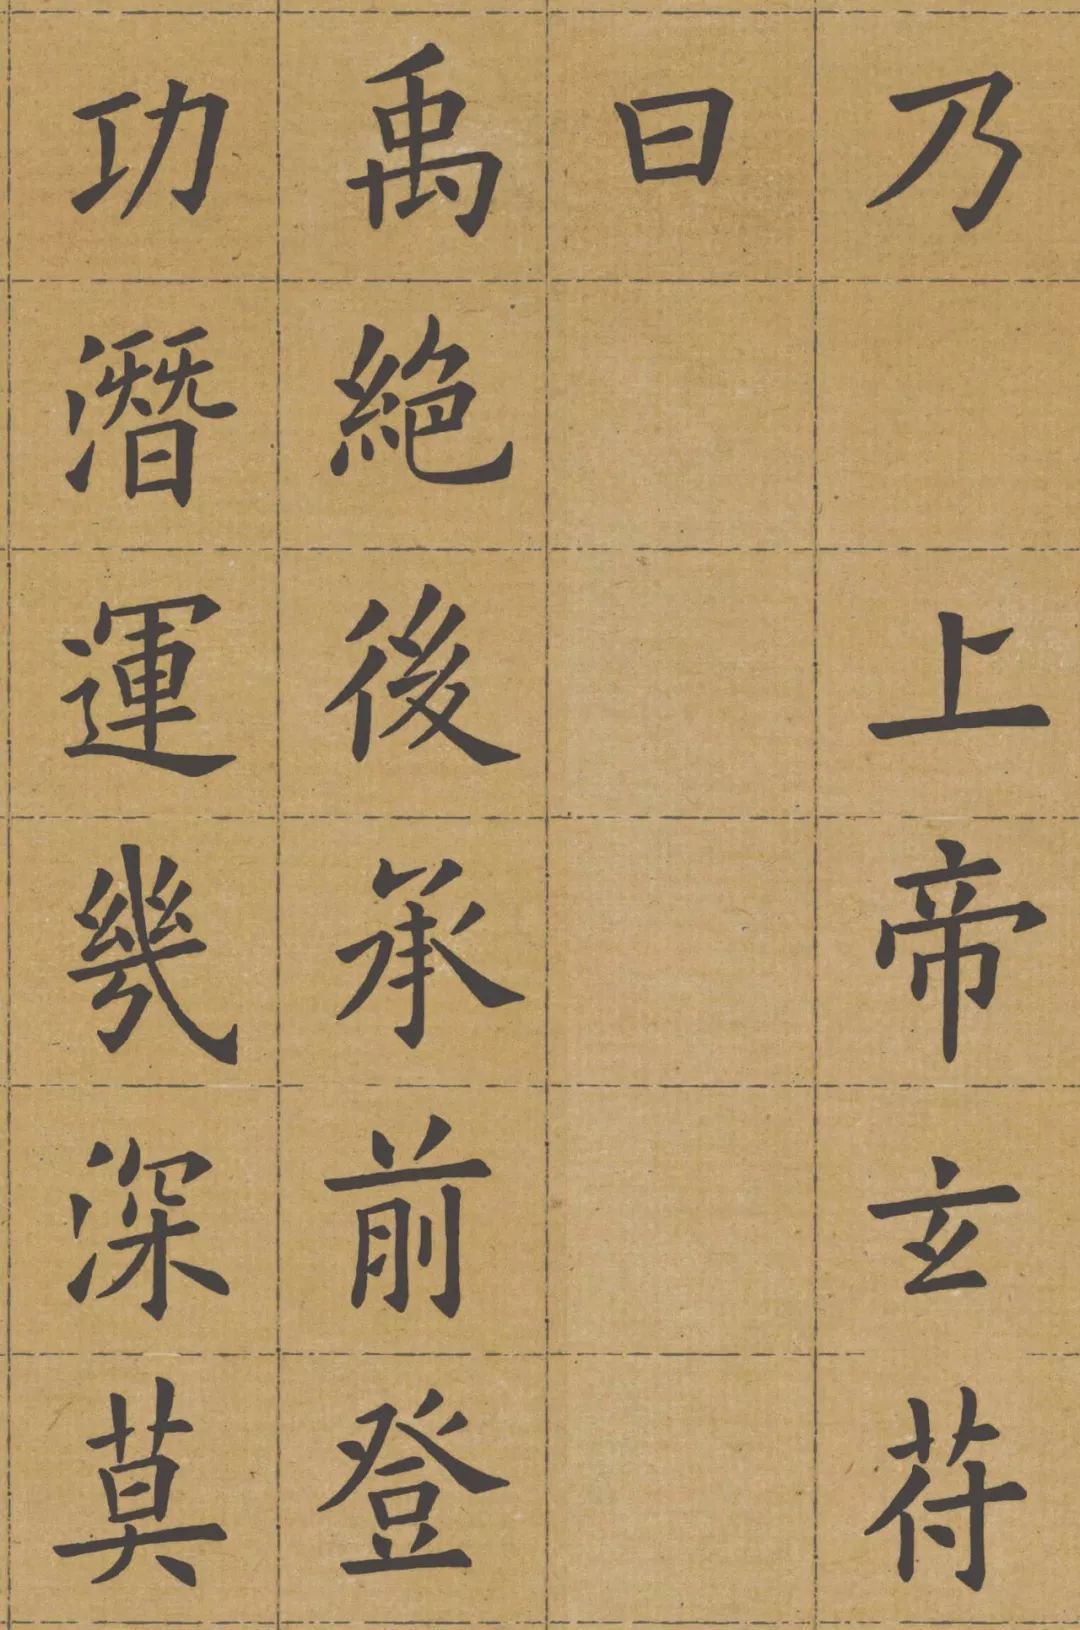 乃 上帝玄苻
曰
禹絶後承前登
功潛運幾深莫